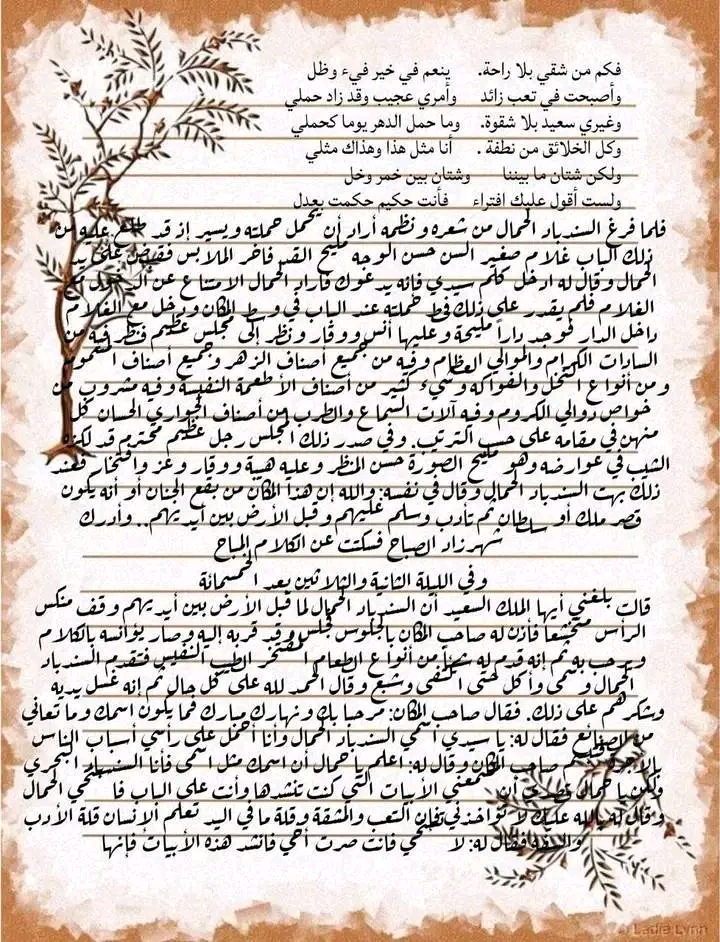 فكم من شقي بلا راحة. ينعم في خير فيء وظل
وأصبحت في تعب زائد وأمري عجيب وقد زاد حملي
وغيري سعيد بلا شقوة. وما حمل الدهر يوما كحملي
وكل الخلائق من نطفة . أنا مثل هذا وهذاك مثلي
ولكن شتان ما بيننا وشتان بين خمر وخل
ولست أقول عليك افتراء فأنت حكيم حكمت بعدل
فلما فرغ السندباد الحمال من شعره ونظمه أراد أن يحمل حملته ويسير إذ قد طلع عليه من
ذلك الباب غلام صغير السن حسن الوجه مليح القد فاخر الملابس فقبض على يد
الحمال وقال له ادخل كلم سيدي فإنه يدعوك فأراد الحمال الامتناع عن الدخول مع
الغلام فلم يقدر على ذلك فحط حملته عند الباب في وسط المكان ودخل مع الغلام
داخل الدار فوجد داراً مليحة وعليها أنس ووقار ونظر إلى مجلس عظيم فنظر فيه من
السادات الكرام والموالي العظام وفيه من جميع أصناف الزهر وجميع أصناف المشموم
ومن أنواع النقل والفواكه وشيء كثير من أصناف الأطعمة النفيسة وفيه مشروب من
خواص دوالي الكروم وفيه آلات السماع والطرب من أصناف الجواري الحسان كل
منهن في مقامه على حسب الترتيب. وفي صدر ذلك المجلس رجل عظيم محترم قد لكزه
الشيب في عوارضه وهو مليح الصورة حسن المنظر وعليه هيبة ووقار وعز وافتخار فعند
ذلك بهت السندباد الحمال وقال في نفسه: والله إن هذا المكان من بقع الجنان أو أنه يكون
قصر ملك أو سلطان ثم تأدب وسلم عليهم وقبل الأرض بين أيديهم.. وأدرك
شهرزاد الصباح فسكتت عن الكلام المباح
وفي الليلة الثانية والثلاثين بعد الخمسمائة
قالت بلغني أيها الملك السعيد أن السندباد الحمال لما قبل الأرض بين أيديهم وقف منكس
الرأس متخشعاً فأذن له صاحب المكان بالجلوس فجلس وقد قربه إليه وصار يؤانسه بالكلام
ويرحب به ثم إنه قدم له شيئاً من أنواع الطعام المفتخر الطيب النفيس فتقدم السندباد
الحمال وسمى وأكل حتى اكتفى وشبع وقال الحمد لله على كل حال ثم إنه غسل يديه
وشكرهم على ذلك. فقال صاحب المكان: مرحبا بك ونهارك مبارك فما يكون اسمك وما تعاني
من الصنائع فقال له: يا سيدي اسمي السندباد الحمال وأنا أحمل على رأسي أسباب الناس
بالأجرة فتبسم صاحب المكان وقال له: اعلم يا حمال أن اسمك مثل اسمي فأنا السندباد البحري
ولكن يا حمال قصدي أن تسمعني الأبيات التي كنت تنشدها وأنت على الباب فاستحى الحمال
وقال له بالله عليك لا تؤاخذني فإن التعب والمشقة وقلة ما في اليد تعلم الإنسان قلة الأدب
والسفه فقال له: لا تستحي فأنت صرت أخي فانشد هذه الأبيات فإنها
Ladie Lynn